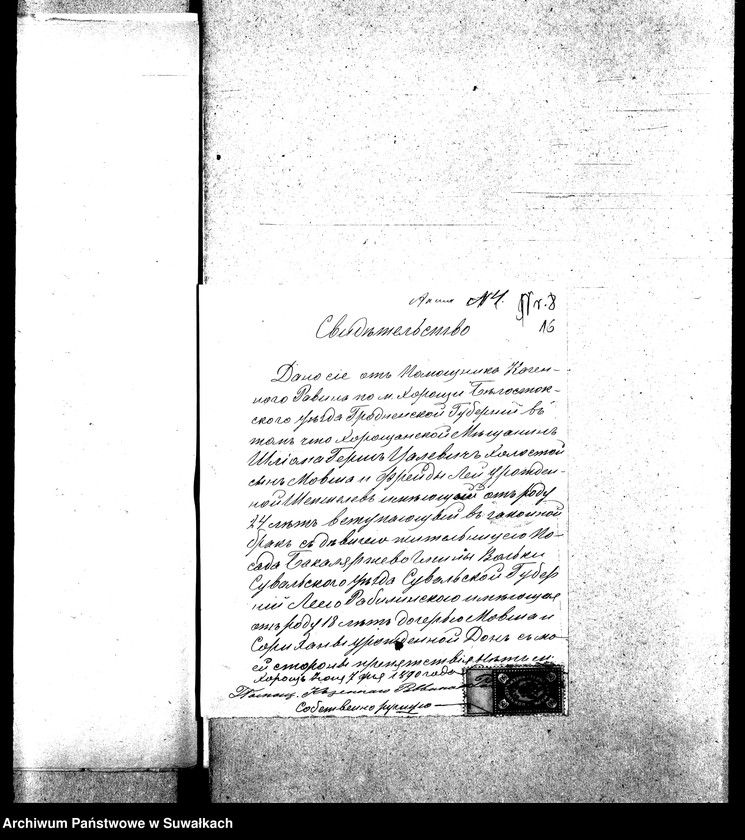 Актъ №4. Nr. 8
16
Свидѣтельство
Дано сіе отъ Помощника Казен-
наго Равина по м. Хорощи Бѣлосток-
скаго уѣзда Гродненской Губерніи въ
томъ что Хорощанской Мѣщанинъ
Шліома Гершъ Цалевичъ холостой
сынъ Мовша и Фрейды Леи урожден-
ной имѣющій отъ роду
24 лѣтъ вступающій въ законной
бракъ съ дѣвицею жительницею По-
сада Бакаляржево Гмины Вольки
Сувальского уѣзда Сувальской Губер
ніи Леею имѣющая
отъ роду 18 лѣтъ дочерью Мовша и
Сори Ханы урожденной Донъ съ мо-
ей стороны препятствія нѣтъ
Хорощъ 7 дня 1890 года
Помощ. Казеннаго Раввина
Собственноручно
Archiwum Państwowe w Suwałkach